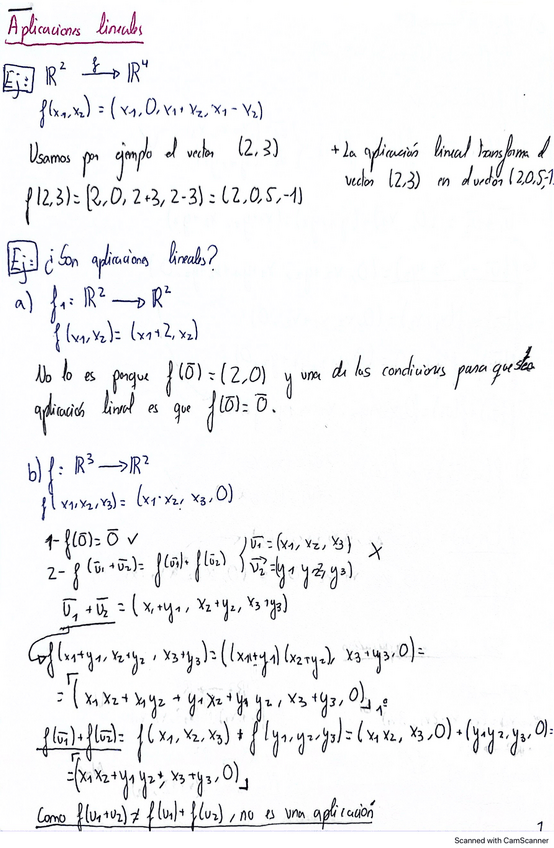 Aplicaciones lineales
Ej: ℝ² —f→ ℝ⁴
f(x₁,x₂) = (x₁, 0, x₁+x₂, x₁-x₂)
Usamos por ejemplo el vector (2,3)
f(2,3) = (2, 0, 2+3, 2-3) = (2,0,5,-1)
+ La aplicación lineal transforma el
vector (2,3) en el vector (2,0,5,-1
Ej: ¿Son aplicaciones lineales?
a) f₁: ℝ² → ℝ²
f(x₁,x₂) = (x₁+2, x₂)
No lo es porque f(0̄) = (2,0) y una de las condiciones para que sea
aplicación lineal es que f(0̄)=0̄.
b) f: ℝ³ → ℝ²
f(x₁,x₂,x₃) = (x₁·x₂, x₃, 0)
1- f(0̄)=0̄ ✓
2- f(v̄₁+v̄₂) = f(v̄₁)+f(v̄₂) { v̄₁=(x₁, x₂, x₃) v̄₂=(y₁ y₂, y₃) X
v̄₁+v̄₂ = (x₁+y₁, x₂+y₂, x₃+y₃)
f(x₁+y₁, x₂+y₂, x₃+y₃) = ((x₁+y₁)(x₂+y₂), x₃+y₃, 0) =
= (x₁x₂ + x₁y₂ + y₁x₂ + y₁y₂, x₃+y₃, 0) 1º
f(v̄₁)+f(v̄₂) = f(x₁,x₂,x₃) + f(y₁,y₂,y₃) = (x₁x₂, x₃, 0) + (y₁y₂, y₃, 0) =
= (x₁x₂+y₁y₂, x₃+y₃, 0)
Como f(v₁+v₂) ≠ f(v₁)+f(v₂), no es una aplicación
1
Scanned with CamScanner